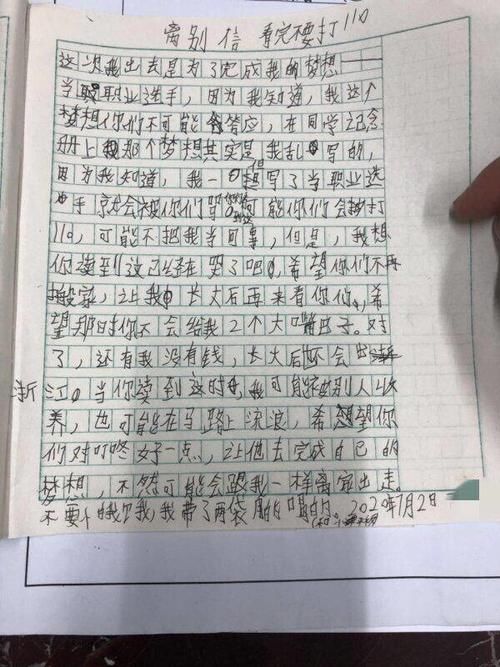 离别信 看完不要打110
这次我出去是为了完成我的梦想——
当职业选手，因为我知道，我这个
梦想你们不可能答应，在同学纪念
册上我那个梦想其实是我乱写的，
因为我知道，我一但想写了当职业选
手就会被你们骂 可能你们会打
110，可能不把我当回事，但是，我想
你读到这已经在哭了吧，希望你们不再
搬家，让我长大后再来看你们，希
望那时你不会给我2个大嘴巴子。对
了，还有我没有钱，长大后还会出
浙江。当你读到这时，我可能被别人收
养，也可能在马路上流浪，希望你
们对叮咚好一点，让他去完成自己的
梦想，不然可能会跟我一样离家出走。
不要 我，我带了两袋 喝的 2020年7月2日